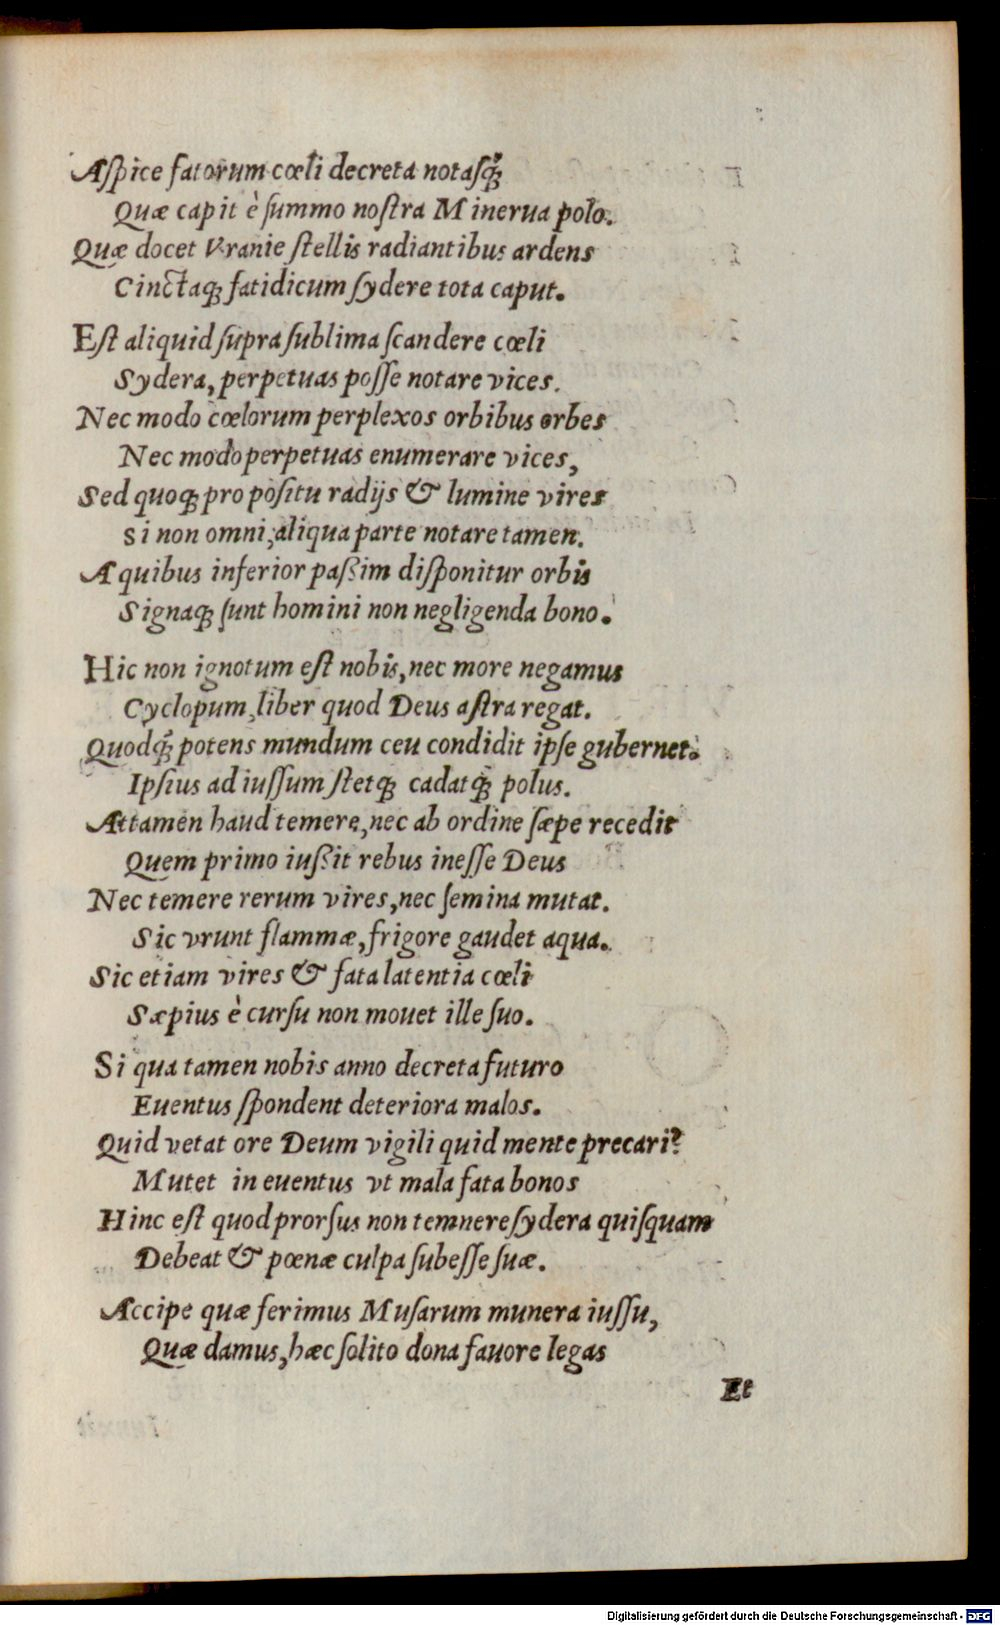 Aſpice fatorum cœli decreta notasq́;
Quæ capit è ſummo noſtra Minerua polo.
Quæ docet Vranie ſtellis radiantibus ardens
Cinctaq; fatidicum ſydere tota caput.
Eſt aliquid ſupra ſublima ſcandere cœli
Sydera, perpetuas poſſe notare vices.
Nec modo cœlorum perplexos orbibus orbes
Nec modo perpetuas enumerare vices,
Sed quoq; propoſitu radijs & lumine vires
Si non omni, aliqua parte notare tamen.
A quibus inferior paßim diſponitur orbis
Signaq; ſunt homini non negligenda bono.
Hic non ignotum eſt nobis, nec more negamus
Cyclopum, liber quod Deus aſtra regat.
Quodq́; potens mundum ceu condidit ipſe gubernet.
Ipſius ad iuſſum ſtetq; cadatq́; polus.
Attamen haud temere, nec ab ordine ſæpe recedit
Quem primo iußit rebus ineſſe Deus
Nec temere rerum vires, nec ſemina mutat.
Sic vrunt flammæ, frigore gaudet aqua.
Sic etiam vires & fata latentia cœli
Sæpius è curſu non mouet ille ſuo.
Si qua tamen nobis anno decreta futuro
Euentus ſpondent deteriora malos.
Quid vetat ore Deum vigili quid mente precari?
Mutet in euentus vt mala fata bonos
Hinc eſt quod prorſus non temnere ſydera quiſquam
Debeat & pœnæ culpa ſubeſſe ſuæ.
Accipe quæ ferimus Muſarum munera iuſſu,
Quæ damus, hæc ſolito dona fauore legas
Et
Digitalisierung gefördert durch die Deutsche Forschungsgemeinschaft - DFG